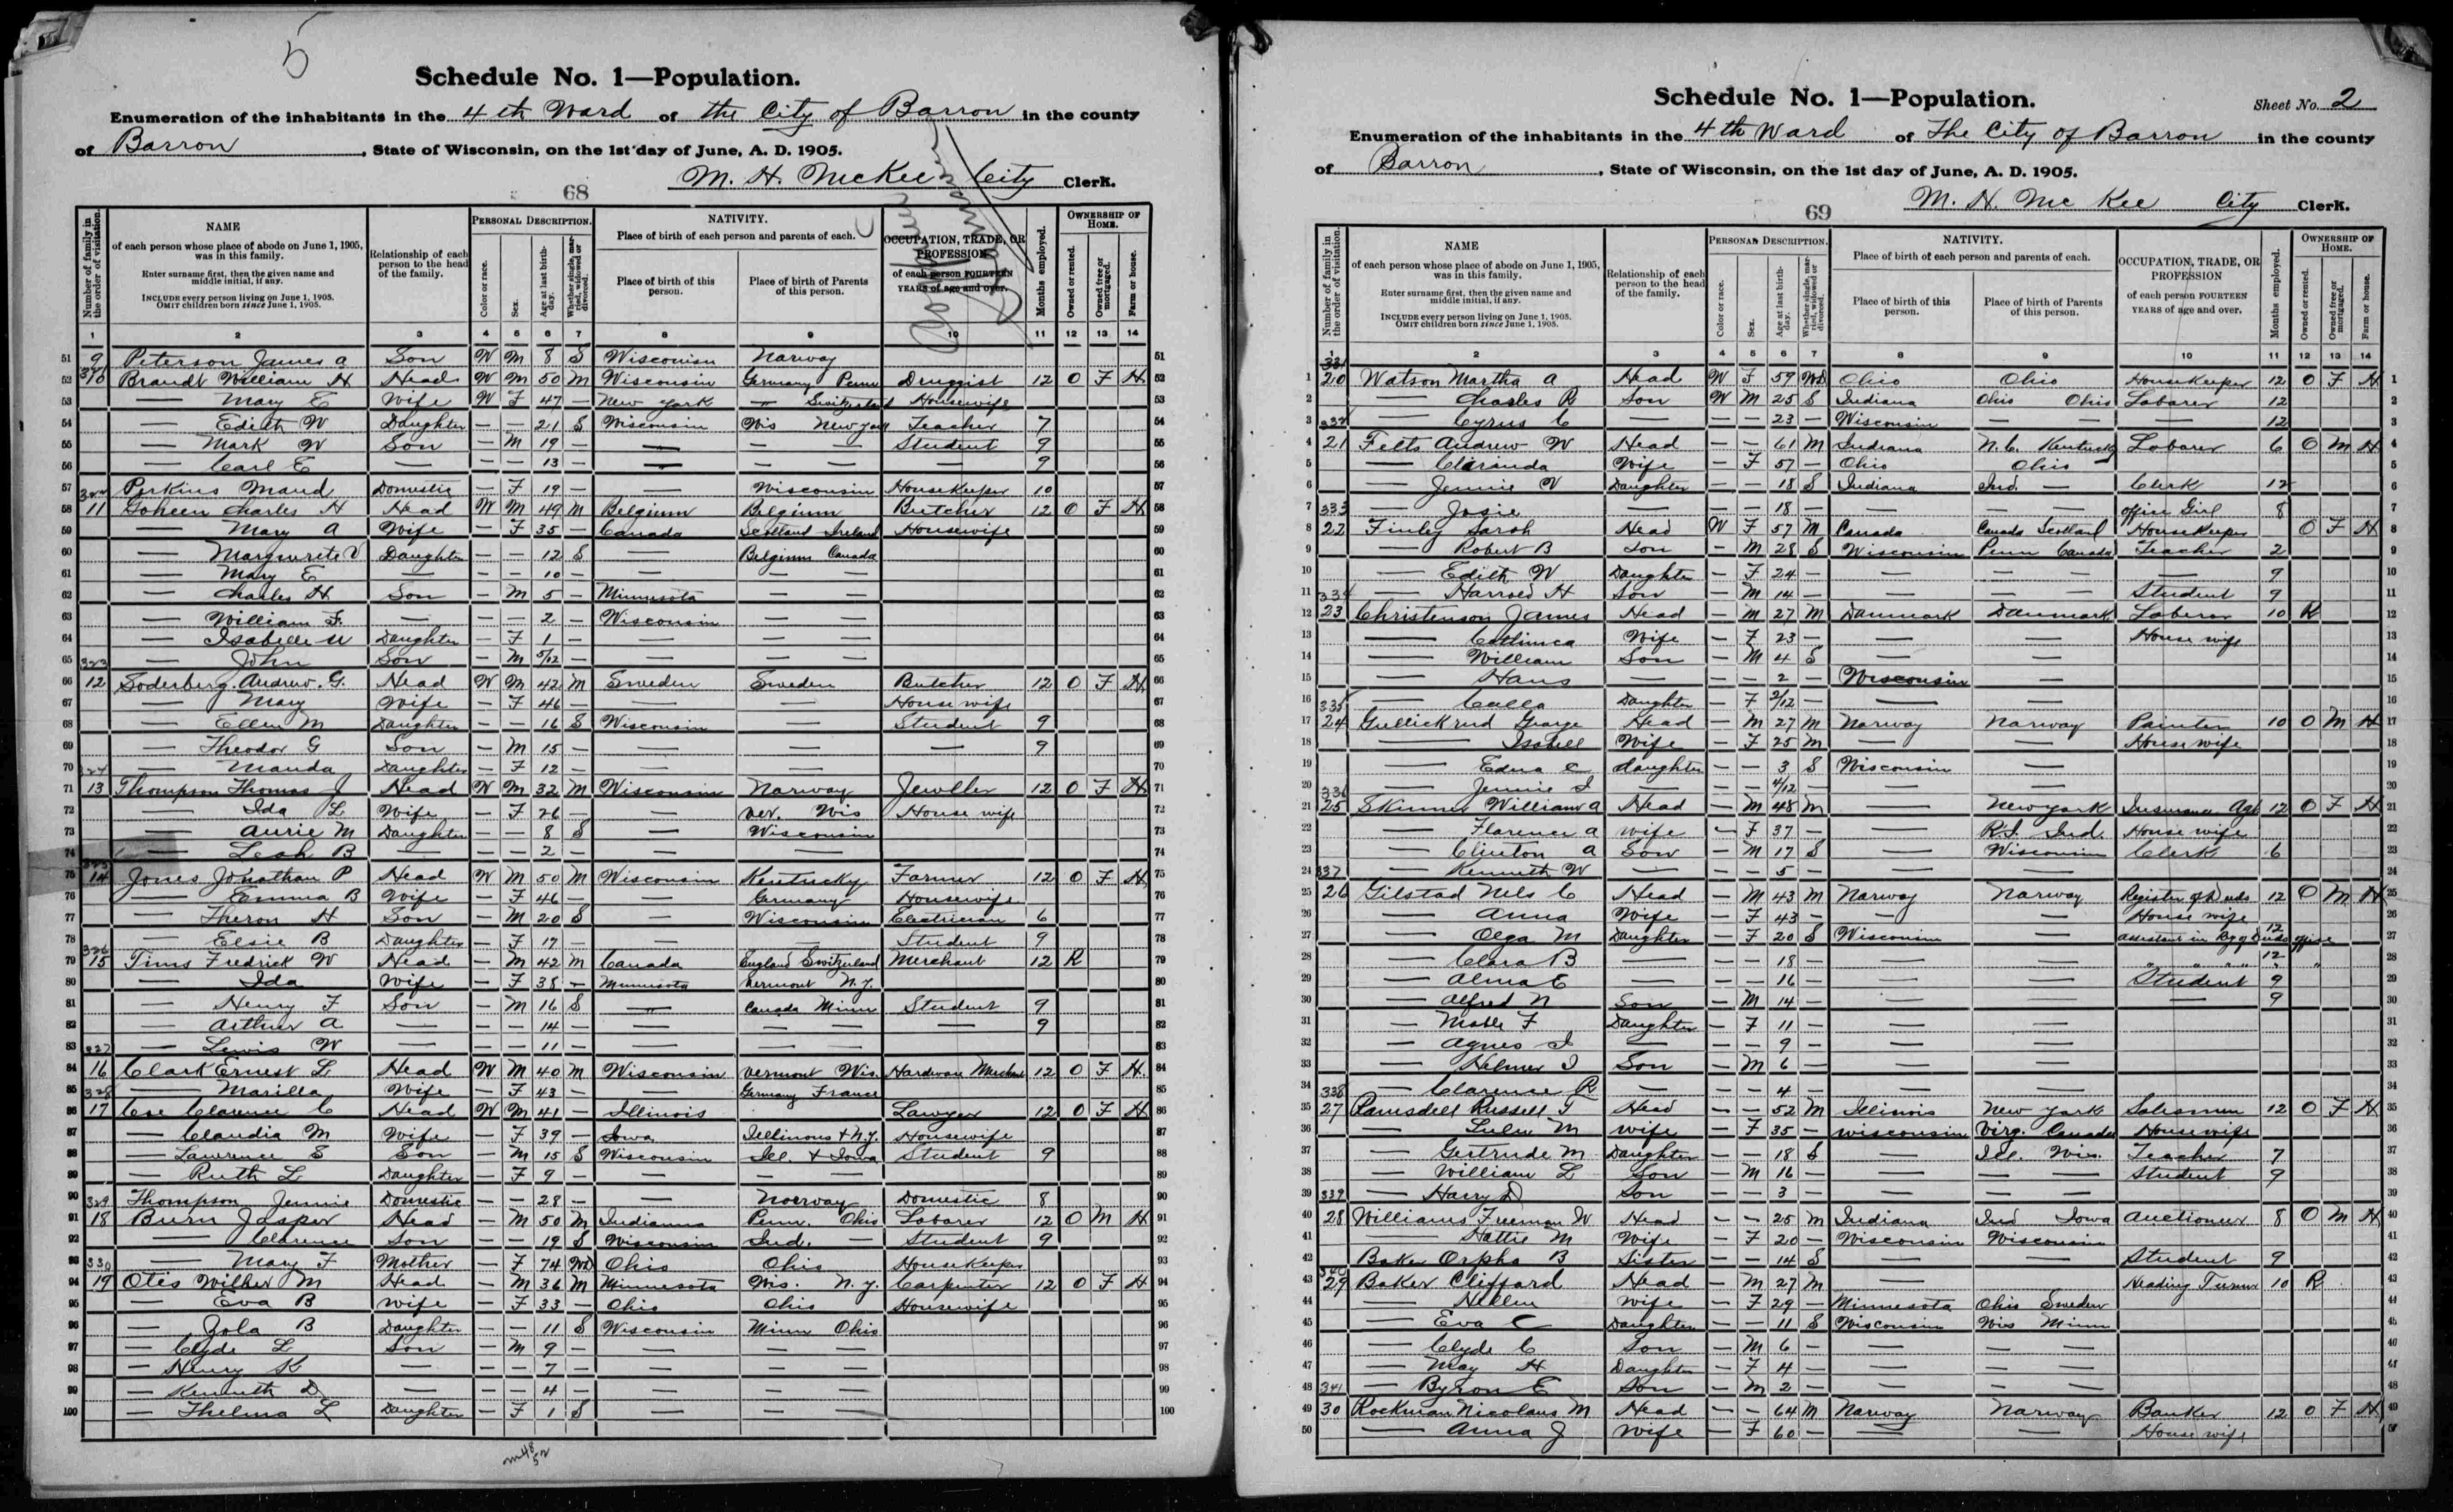 5
Schedule No. 1—Population.
Enumeration of the inhabitants in the 4th Ward of the City of Barron in the county
of Barron, State of Wisconsin, on the 1st day of June, A. D. 1905.
M. H. McKee City Clerk.
68
Number of family in the order of visitation.
NAME
of each person whose place of abode on June 1, 1905, was in this family.
Enter surname first, then the given name and middle initial, if any.
INCLUDE every person living on June 1, 1905. OMIT children born since June 1, 1905.
Relationship of each person to the head of the family.
PERSONAL DESCRIPTION.
Color or race.
Sex.
Age at last birthday.
Whether single, married, widowed or divorced.
NATIVITY.
Place of birth of each person and parents of each.
Place of birth of this person.
Place of birth of Parents of this person.
OCCUPATION, TRADE, OR PROFESSION
of each person FOURTEEN YEARS of age and over.
Months employed.
OWNERSHIP OF HOME.
Owned or rented.
Owned free or mortgaged.
Farm or house.
1 2 3 4 5 6 7 8 9 10 11 12 13 14
51 9 Peterson James A Son W M 8 S Wisconsin Norway 51
52 10 Brandt William H Head W M 50 M Wisconsin Germany Penn Druggist 12 O F H 52
53 — Mary E Wife W F 47 — New York — Switzerland Housewife 53
54 — Edith W Daughter — — 21 S Wisconsin Wis New York Teacher 7 54
55 — Mark W Son — M 19 — — — — Student 9 55
56 — Carl E — — — 13 — — — — 9 56
57 Perkins Maud Domestic — F 19 — — Wisconsin HouseKeeper 10 57
58 11 Goheen Charles H Head W M 49 M Belgium Belgium Butcher 12 O F H 58
59 — Mary A Wife — F 35 — Canada Scotland Ireland Housewife 59
60 — Marguerite V Daughter — — 12 S — Belginm Canada 60
61 — Mary E — — — 10 — — — — 61
62 — Charles H Son — M 5 — Minnesota — — 62
63 — William F. — — — 2 — Wisconsin — — 63
64 — Isabelle M Daughter — F 1 — — — — 64
65 323 — John Son — M 5/12 — — — — 65
66 12 Soderberg. Andrew. G. Head W M 42 M Sweden Sweden Butcher 12 O F H 66
67 — Mary Wife — F 46 — — — House wife 67
68 — Ellen M Daughter — — 16 S Wisconsin — Student 9 68
69 — Theodor G Son — M 15 — — — — 9 69
70 324 — Manda Daughter — F 12 — — — 70
71 13 Thompson Thomas J Head W M 32 M Wisconsin Norway Jeweller 12 O F H 71
72 — Ida L Wife — F 26 — — Ver. Wis House wife 72
73 — Aurie M Daughter — — 8 S — Wisconsin 73
74 — Leah B — — — 2 — — — 74
75 14 Jones Jonathan P Head W M 50 M Wisconsin Kentucky Farmer 12 O F H 75
76 — Emma B Wife — F 46 — — Germany Housewife 76
77 — Theron H Son — M 20 S — Wisconsin Electrician 6 77
78 — Elsie B Daughter — F 17 — — — Student 9 78
79 326 15 Tims Fredrick W Head — M 42 M Canada England Switzerland Merchant 12 R 79
80 — Ida Wife — F 38 — Minnesota Vermont N.Y. 80
81 — Henry F Son — M 16 S — Canada Minn Student 9 81
82 — Arthur A — — — 14 — — — — — 9 82
83 327 — Lewis W — — — 11 — — — — 83
84 16 Clark Ernest L Head W M 40 M Wisconsin Vermont Wis. Hardware Merchant 12 O F H. 84
85 328 — Marilla Wife — F 43 — — Germany France 85
86 17 Coe Clarence C Head W M 41 — Illinois Lawyer 12 O F H 86
87 — Claudia M Wife — F 39 — Iowa Illinous + N.Y. Housewife 87
88 — Lawrence E Son — M 15 S Wisconsin Ill. + Iowa Student 9 88
89 — Ruth L Daughter — F 9 — — — 89
90 329 Thompson Jennie Domestic — — 28 — — Noerway Domestic 8 90
91 18 Burn Jasper Head — M 50 M Indianna Penn. Ohio Laborer 12 O M H 91
92 — Clarence Son — — 19 S Wisconsin Ind. — Student 9 92
93 330 — Mary F Mother — F 74 WD Ohio Ohio HouseKeeper 93
94 19 Otis Wilber M Head — M 36 M Minnesota Wis. N.Y. Carpenter 12 O F H 94
95 — Eva B Wife — F 33 — Ohio Ohio Housewife 95
96 — Zola B Daughter — — 11 S Wisconsin Minn Ohio 96
97 — Clyde L Son — M 9 — — — — 97
98 — Henry K — — — 7 — — — — 98
99 — Kenneth D — — — 4 — — — — 99
100 — Thelma L Daughter — F 1 S — — — 100
m48
52
Schedule No. 1—Population.
Sheet No. 2
Enumeration of the inhabitants in the 4th Ward of The City of Barron in the county
of Barron, State of Wisconsin, on the 1st day of June, A. D. 1905.
M. H. Mc Kee City Clerk.
69
Number of family in the order of visitation.
NAME
of each person whose place of abode on June 1, 1905, was in this family.
Enter surname first, then the given name and middle initial, if any.
INCLUDE every person living on June 1, 1905. OMIT children born since June 1, 1905.
Relationship of each person to the head of the family.
PERSONAL DESCRIPTION.
Color or race.
Sex.
Age at last birthday.
Whether single, married, widowed or divorced.
NATIVITY.
Place of birth of each person and parents of each.
Place of birth of this person.
Place of birth of Parents of this person.
OCCUPATION, TRADE, OR PROFESSION
of each person FOURTEEN YEARS of age and over.
Months employed.
OWNERSHIP OF HOME.
Owned or rented.
Owned free or mortgaged.
Farm or house.
1 2 3 4 5 6 7 8 9 10 11 12 13 14
331
1 20 Watson Martha A Head W F 59 WD Ohio Ohio HouseKeeper 12 O F H 1
2 — Charles R Son W M 25 S Indiana Ohio Ohio Laborer 12 2
3 332 — Cyrus C — — — 23 — Wisconsin — — — 12 3
4 21 Felts Andrew W Head — — 61 M Indiana N.C. Kentucky Laborer 6 O M H 4
5 — Clarinda Wife — F 57 — Ohio Ohio 5
6 — Jennie V Daughter — — 18 S Indiana Ind — Clerk 12 6
7 333 — Josie — — — 18 — — — — office Girl 8 7
8 22 Finley Sarah Head W F 57 M Canada Canada Scotland HouseKeeper O F H 8
9 — Robert B Son — M 28 S Wisconsin Penn Canada Teacher 2 9
10 — Edith W Daughter — F 24 — — — — — 9 10
11 334 — Harrold H Son — M 14 — — — — Student 9 11
12 23 Christenson James Head — M 27 M Danmark Danmark Laberor 10 R 12
13 — Wife — F 23 — — — House wife 13
14 — William Son — M 4 S — — 14
15 — Hans — — — 2 — Wisconsin — 15
16 335 — Calla Daughter — F 2/12 — — — 16
17 24 Gullickrud George Head — M 27 M Norway Norway Painter 10 O M H 17
18 — Isabell Wife — F 25 M — — House wife 18
19 — Edna C daughter — — 3 S Wisconsin — 19
20 336 — Jennie I — — — 4/12 — — — 20
21 25 Skinner William A Head — M 48 M — New York Insurance Agt 12 O F H 21
22 — Florence A wife — F 37 — — R.I. Ind. House wife 22
23 — Clinton A Son — M 17 S — Wisconsin Clerk 6 23
24 337 — Kenneth W — — — 5 — — — 24
25 26 Gilstad Nels C Head — M 43 M Norway Norway Register of Deeds 12 O M H 25
26 — Anna Wife — F 43 — — — House wife 26
27 — Olga M Daughter — F 20 S Wisconsin — assistant in Reg of Deeds office 12 27
28 — Clara B — — — 18 — — — " " " " " " 12 28
29 — Alma C — — — 16 — — — Student 9 29
30 — Alfred N Son — M 14 — — — — 9 30
31 — Mable F Daughter — F 11 — — — 31
32 — Agnes I — — — 9 — — — 32
33 — Helmer I Son — M 6 — — — 33
34 338 — Clarence R — — — 4 — — — 34
35 27 Ramsdell Russell T Head — — 52 M Illinois New York Salesman 12 O F H 35
36 — Lulu M wife — F 35 — wisconsin Virg. Canada Housewife 36
37 — Gertrude M Daughter — — 18 S — Ill. Wis. Teacher 7 37
38 — William L Son — M 16 — — — — Student 9 38
39 339 — Harry D Son — — 3 — — — — 39
40 28 Williams Freeman W Head — — 25 M Indiana Ind Iowa Auctioneer 8 O M H 40
41 — Hattie M Wife — F 20 — Wisconsin Wisconsin 41
42 Baker Orpha B Sister — — 14 S — — Student 9 42
43 340 29 Baker Cliffard Head — M 27 M — — Heading Turner 10 R 43
44 — Hellen wife — F 29 — Minnesota Ohio Sweden 44
45 — Eva C Daughter — — 11 S Wisconsin Wis Minn 45
46 — Clyde C Son — M 6 — — — — 46
47 — May H Daughter — F 4 — — — — 47
48 341 — Byron E Son — M 2 — — — — 48
49 30 Rockman Nicolaus M Head — — 64 M Norway Norway Banker 12 O F H 49
50 — Anna J wife — F 60 — — — House wife 50